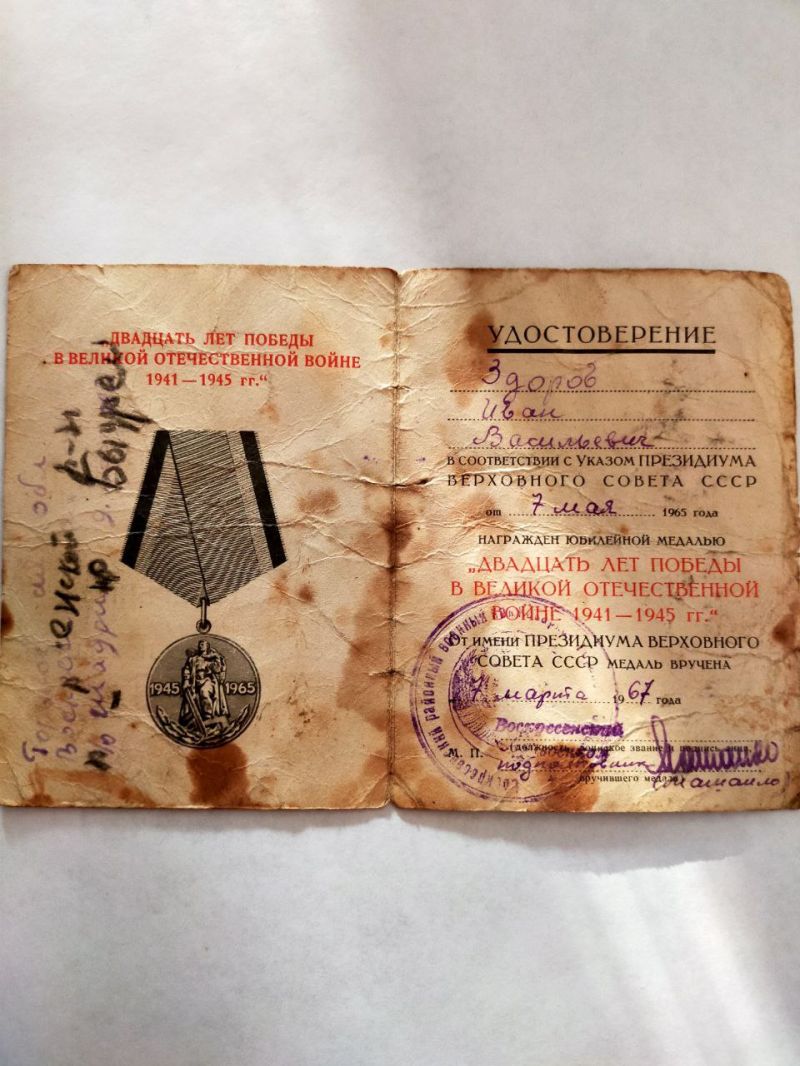 ДВАДЦАТЬ ЛЕТ ПОБЕДЫ
В ВЕЛИКОЙ ОТЕЧЕСТВЕННОЙ ВОЙНЕ
1941—1945 гг."
1945 1965
УДОСТОВЕРЕНИЕ
Здоров
Иван
Васильевич
В СООТВЕТСТВИИ С УКАЗОМ ПРЕЗИДИУМА
ВЕРХОВНОГО СОВЕТА СССР
от 7 мая 1965 года
НАГРАЖДЕН ЮБИЛЕЙНОЙ МЕДАЛЬЮ
„ДВАДЦАТЬ ЛЕТ ПОБЕДЫ
В ВЕЛИКОЙ ОТЕЧЕСТВЕННОЙ
ВОЙНЕ 1941—1945 гг."
ОТ ИМЕНИ ПРЕЗИДИУМА ВЕРХОВНОГО
СОВЕТА СССР МЕДАЛЬ ВРУЧЕНА
7 марта 1967 года
Воскресенский
М. П. (должность, воинское звание и подпись лица,
подполковник
вручившего медаль)
районный военный